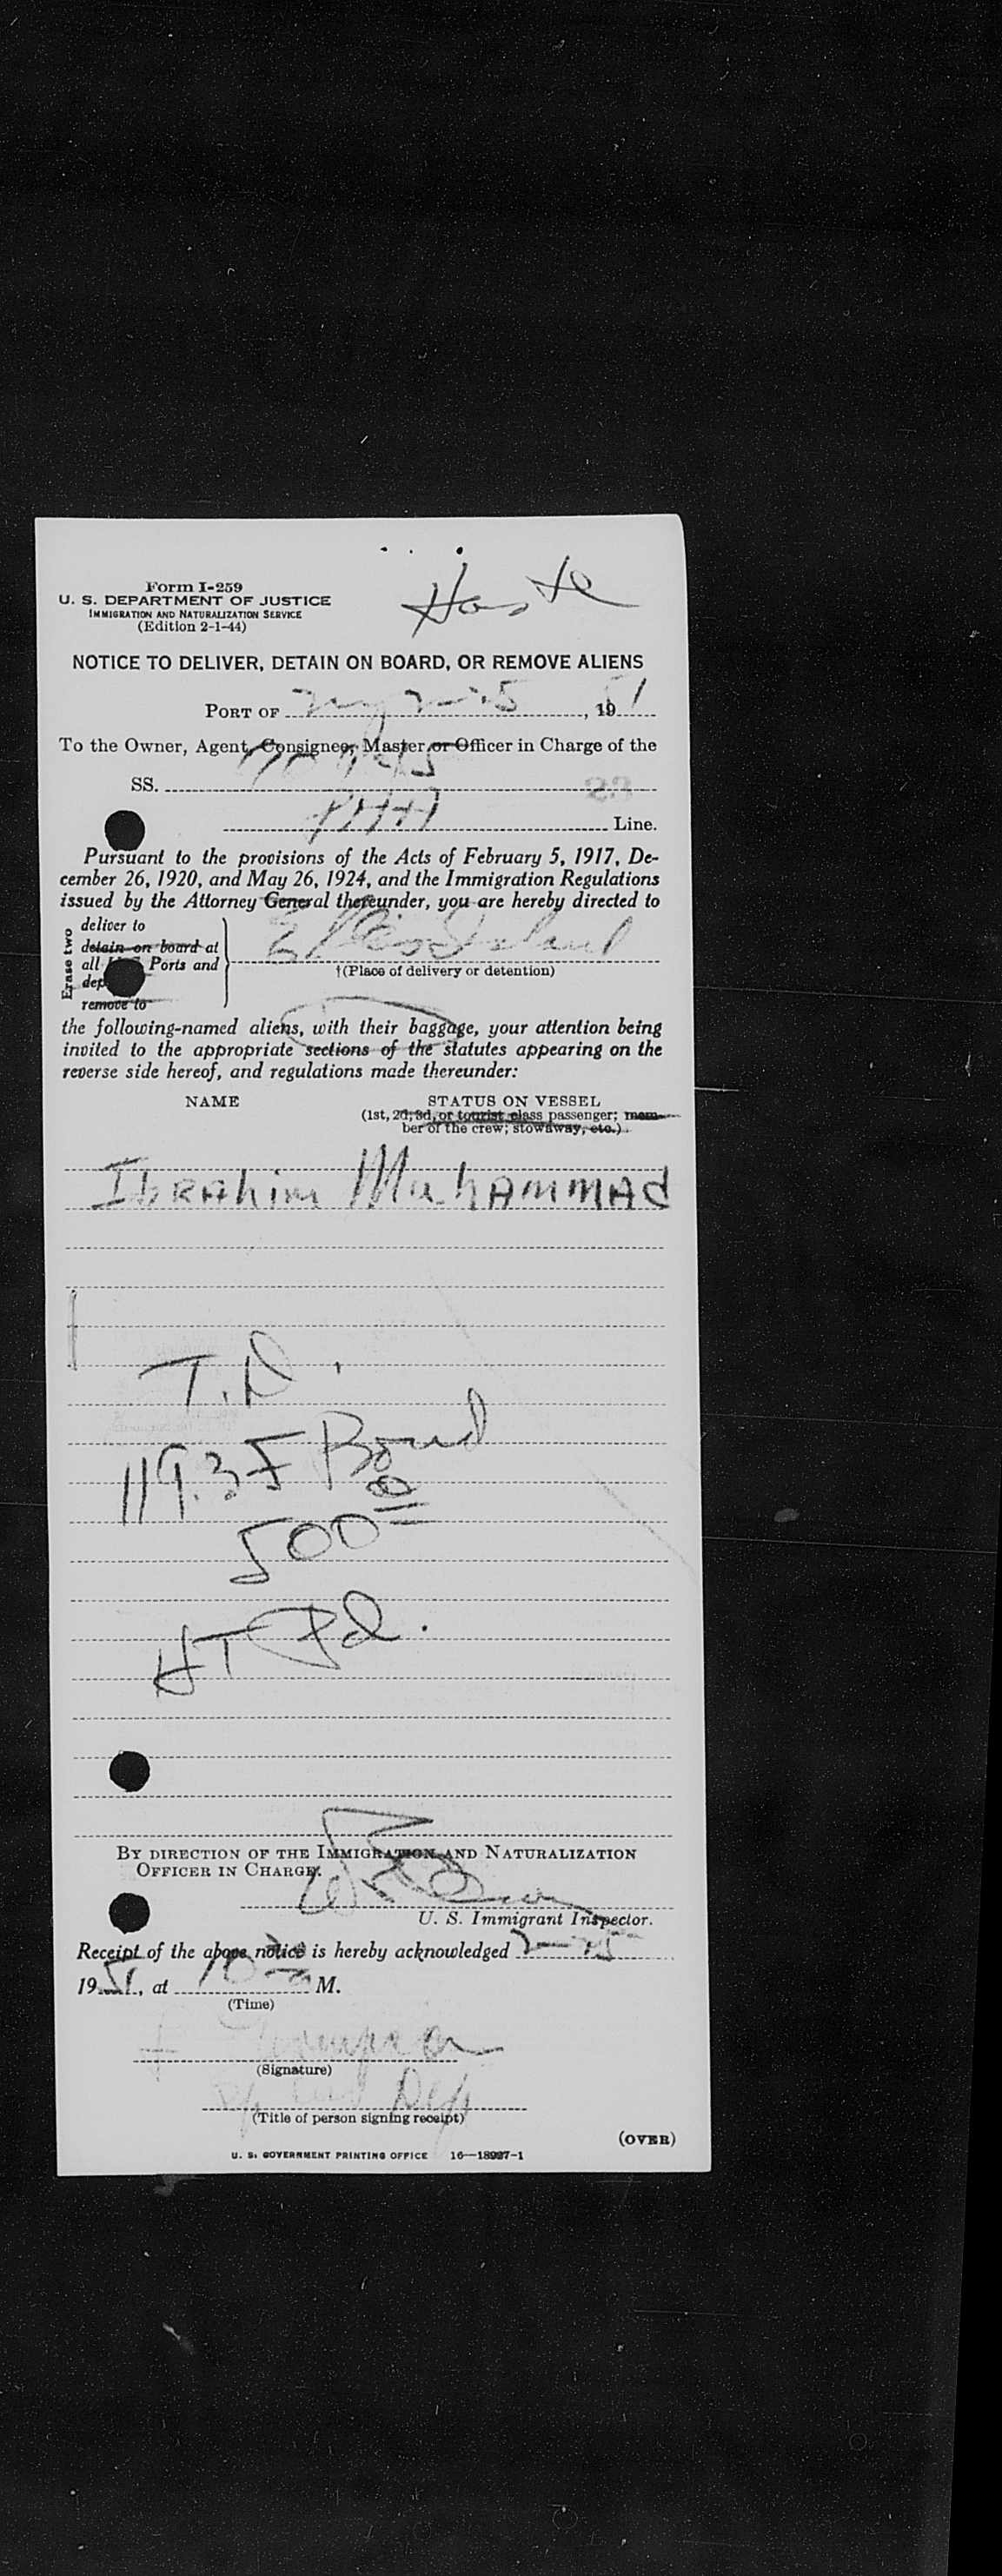 Form I-259
U. S. DEPARTMENT OF JUSTICE
IMMIGRATION AND NATURALIZATION SERVICE
(Edition 2-1-44)
NOTICE TO DELIVER, DETAIN ON BOARD, OR REMOVE ALIENS
PORT OF NY 2-25, 1951
To the Owner, Agent, Consignee, Master or Officer in Charge of the
SS.
Line.
Pursuant to the provisions of the Acts of February 5, 1917, De-
cember 26, 1920, and May 26, 1924, and the Immigration Regulations
issued by the Attorney General thereunder, you are hereby directed to
Erase two
deliver to
detain on board at
all Ports and
remove to
Ellis Island
†(Place of delivery or detention)
the following-named aliens, with their baggage, your attention being
invited to the appropriate sections of the statutes appearing on the
reverse side hereof, and regulations made thereunder:
NAME STATUS ON VESSEL
(1st, 2d, 3d, or tourist class passenger; mem-
ber of the crew; stowaway, etc.)
Ibrahim Muhammad
T.D.
Bond
500 00
HT Pd.
BY DIRECTION OF THE IMMIGRATION AND NATURALIZATION
OFFICER IN CHARGE.
U. S. Immigrant Inspector.
Receipt of the above notice is hereby acknowledged 2-25
1951, at M.
(Time)
(Signature)
(Title of person signing receipt)
(OVER)
U. S. GOVERNMENT PRINTING OFFICE 16—18927-1